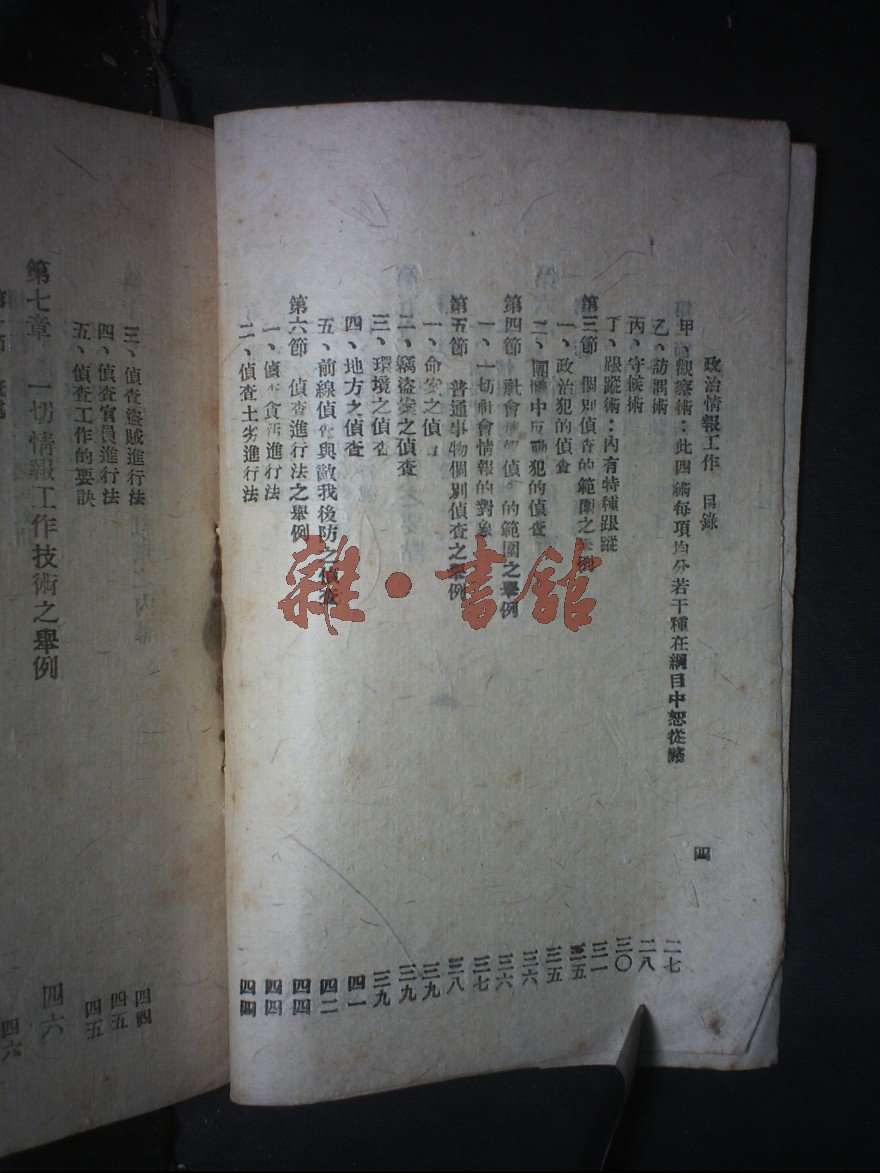 政治情報工作 目錄
四
甲、觀察術：此四術每項均分若干種在綱目中恕從略 二七
乙、訪問術 二八
丙、守候術 三〇
丁、跟蹤術：內有特種跟蹤 三一
第三節 個別偵查的範圍之舉例 三五
一、政治犯的偵查 三五
二、團體中反動犯的偵查 三六
第四節 社會 偵 的範圍之舉例 三六
一、一切社會情報的對象 三七
第五節 普通事物個別偵查之舉例 三八
一、命案之偵 三九
二、竊盜案之偵查 三九
三、環境之偵查 三九
四、地方之偵查 四一
五、前線偵查與敵我後防之偵查 四二
第六節 偵查進行法之舉例 四四
一、偵查貪污進行法 四四
二、偵查土劣進行法 四四
三、偵查盜賊進行法 四四
四、偵查官員進行法 四五
五、偵查工作的要訣 四五
第七章 一切情報工作技術之舉例 四六
第一節 四六
雜·書館